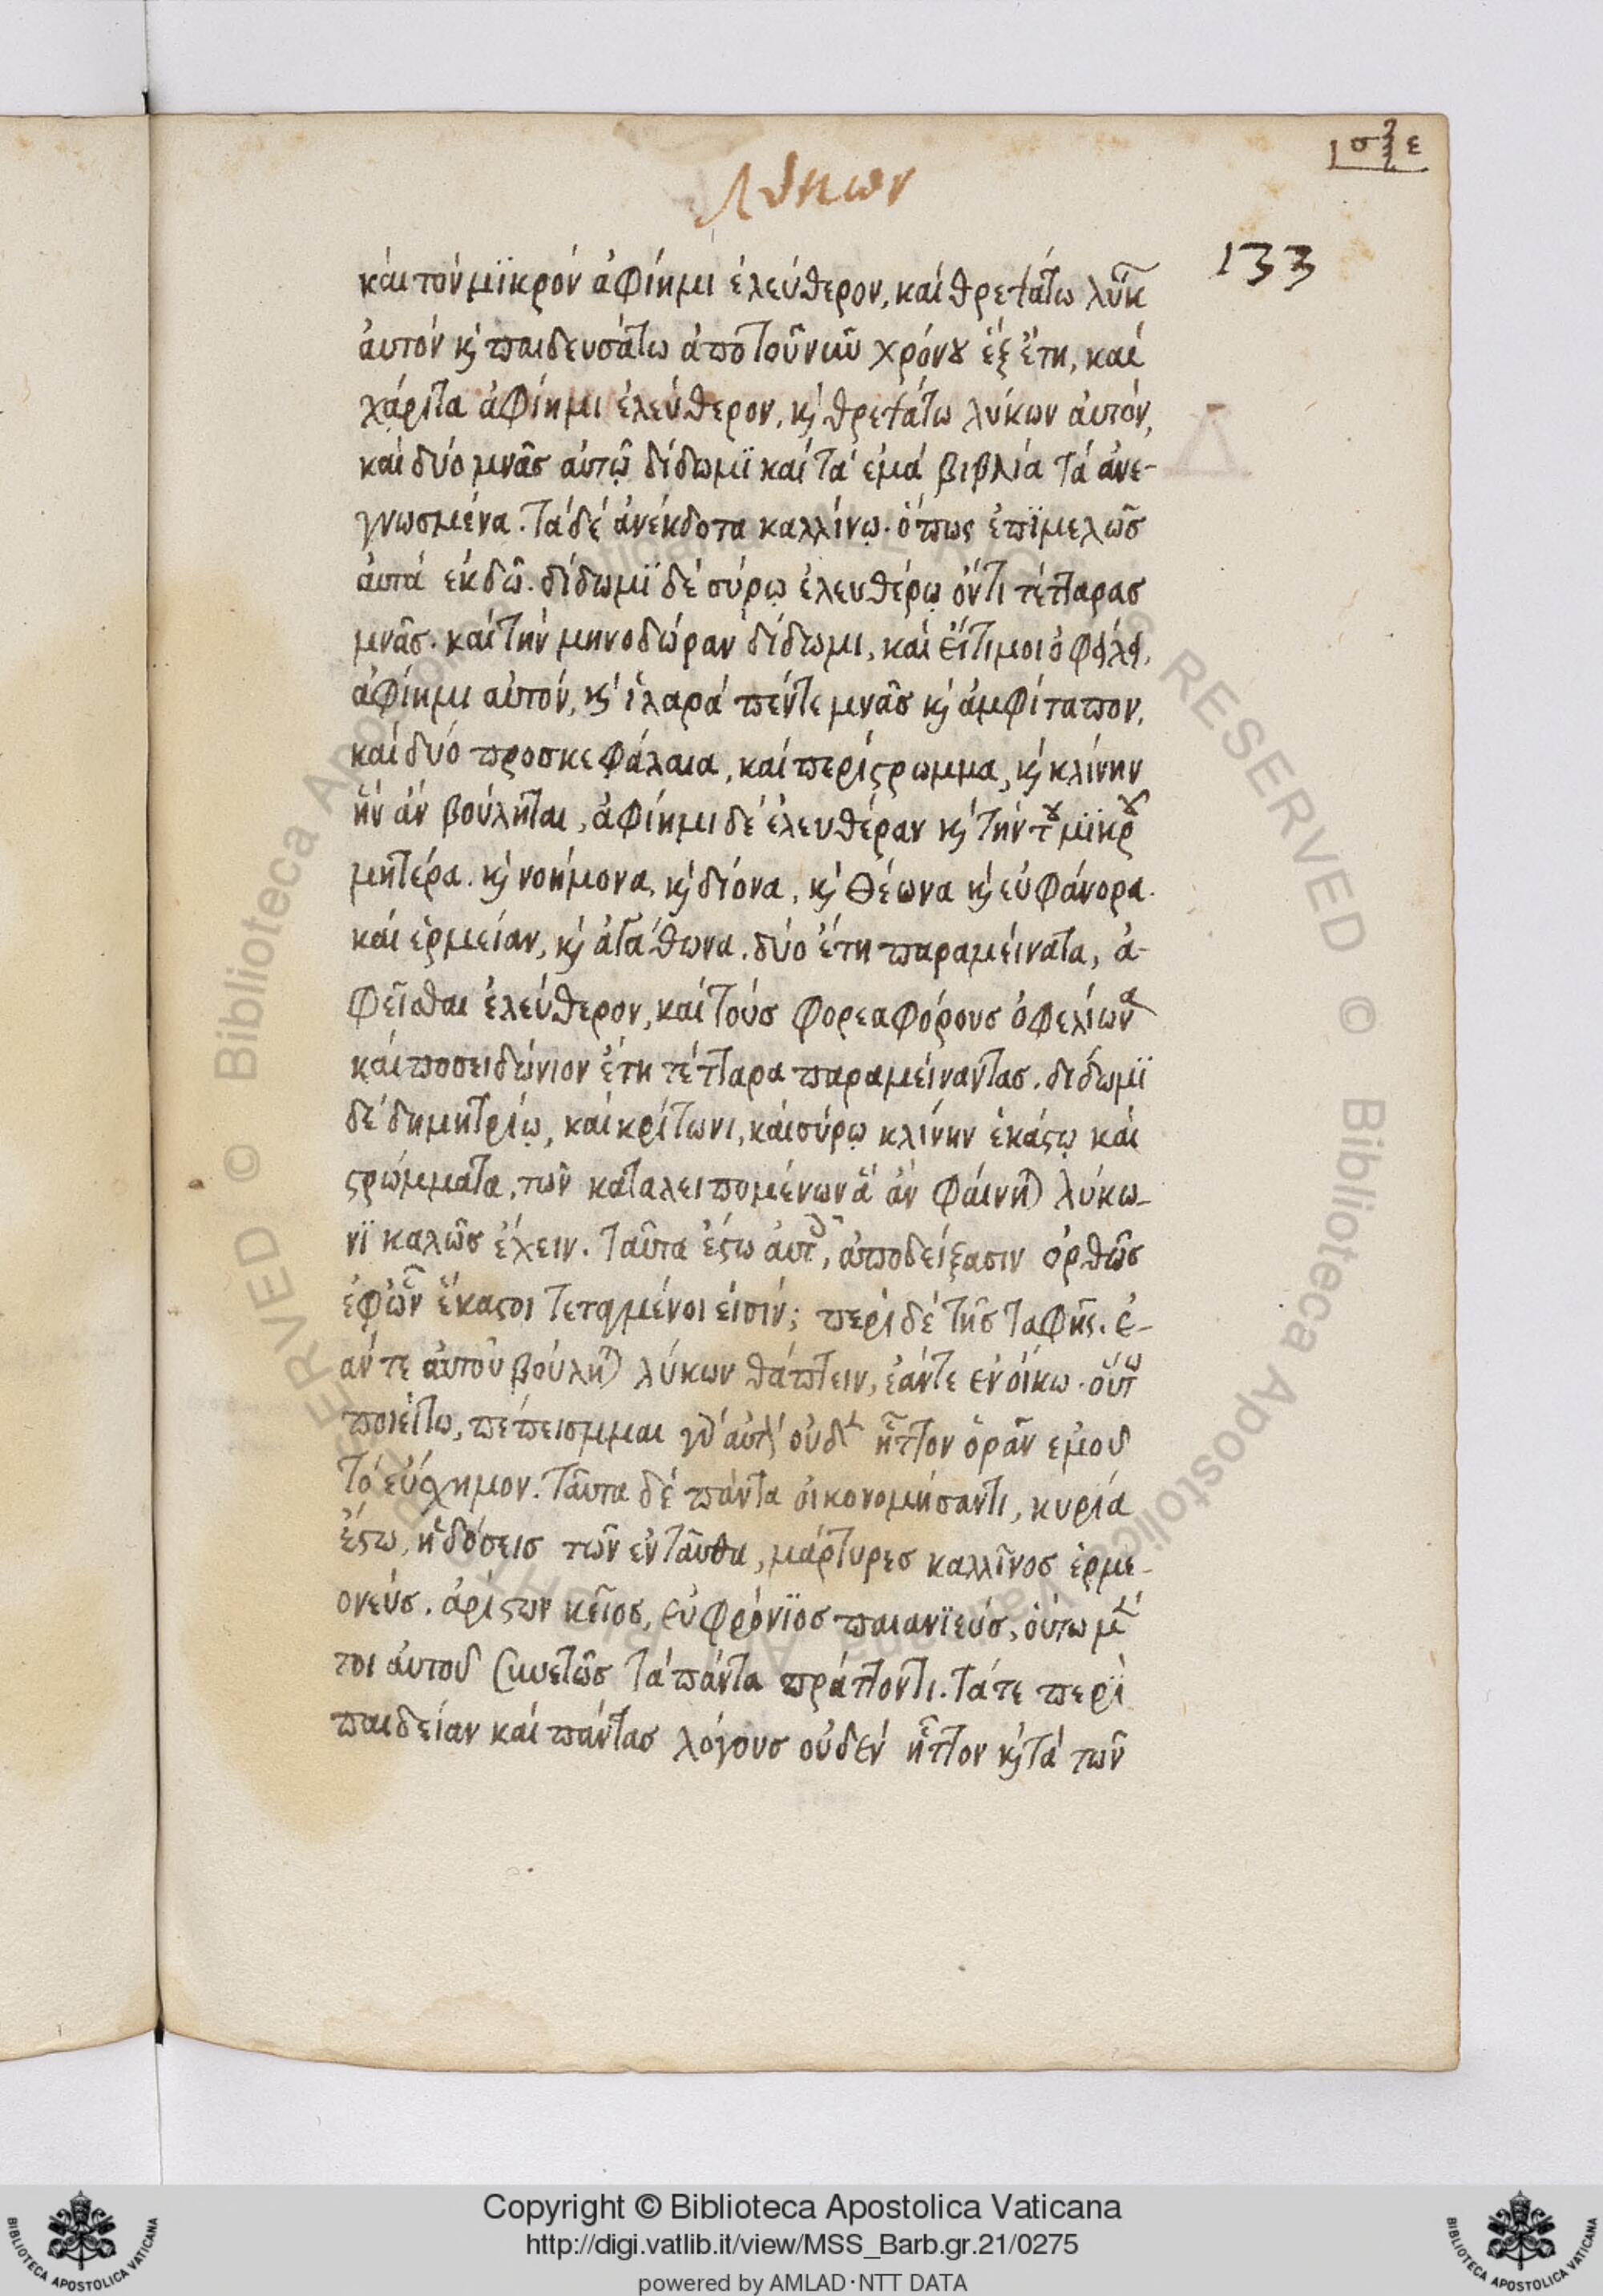 σϟε
λύκων
133
καὶ τὸν μϊκρόν ἀφίημι ἐλεύθερον, καί θρεψάτω λῦκ
ἀυτόν κ̀ παιδευσάτω ἀπό τοῦ νῦν χρόνȣ ἕξ ἔτη, καί
χάριτα ἀφίημι ἐλεύθερον, κ̀ θρεψάτω λύκων ἀυτόν,
καὶ δυό μνᾶσ αὐτῷ δίδωμϊ καί τά ἐμά βιβλία τά ἀνε-
γνωσμένα. τά δέ ἀνέκδοτα καλλίνῳ. ὅπως ἐπϊμελῶσ
ἀυτά ἐκδῶ. δίδωμϊ δέ σύρῳ ἐλευθέρῳ ὄντι τέτταρασ
μνᾶσ. καί τήν μηνοδώραν δίδωμι, καί εἴ τι μοι ὀφείλει,
ἀφίημι αὐτόν, κ̀ ἱλαρά πέντε μνᾶσ κ̀ ἀμφίταπον,
καί δυό προσκεφάλαια, καί περίϛρωμμα, κ̀ κλίνην
ἥν ἄν βούληται, ἀφίημι δέ ἐλευθέραν κ̀ τήν τȣ μϊκρȣ
μητέρα. κ̀ νοήμονα, κ̀ δίονα, κ̀ θέωνα κ̀ εὐφάνορα.
καί ἑρμείαν, κ̀ ἀγάθωνα. δύο ἔτη παραμείνατα, ἀ-
φεῖσθαι ἐλεύθερον, καί τούσ φορεαφόρουσ ὀφελίωνα
καί ποσειδώνιον ἔτη τέτταρα παραμείναντασ. δίδωμϊ
δέ δημητρίῳ, καί κρίτωνι, καί σύρῳ κλίνην ἑκάϛῳ καί
ϛρώμματα, τῶν καταλειπομένων ἅ ἄν φάινη) λύκω-
νϊ καλῶσ ἔχειν. ταῦτα ἔϛω ἀυτ, ἀποδείξασιν ὀρθῶσ
ἐφ ὧν ἕκαϛοι τεταγμένοι εἰσίν; περί δέ τῆσ ταφῆς. ἐ-
άν τε ἀυτοῦ βούλη) λύκων θάπτειν, ἐάντε ἐν οἴκω. οὕτω
ποιείτω, πέπεισμμαι γδ ἀυτ οὐδ ἧττον ὁρᾶν εμοῦ
τό εὔσχημον. ταῦτα δέ πάντα οἰκονομήσαντι, κυρία
ἔϛω, ἡ δόσεισ τῶν ἐνταῦθα, μάρτυρεσ καλλῖνοσ ἑρμε-
ονεύσ. ἀρίϛων κεῖοσ, εὐφρόνϊοσ παιανϊεύσ, ὅυτω μ
τοι ἀυτοῦ συνετῶσ τά πάντα πράττοντι. τάτε περὶ
παιδείαν καί πάντασ λόγουσ οὐδέν ἧττον κ̀ τά τῶν
Copyright © Biblioteca Apostolica Vaticana
http://digi.vatlib.it/view/MSS_Barb.gr.21/0275
powered by AMLAD·NTT DATA
BIBLIOTECA APOSTOLICA VATICANA
BIBLIOTECA APOSTOLICA VATICANA